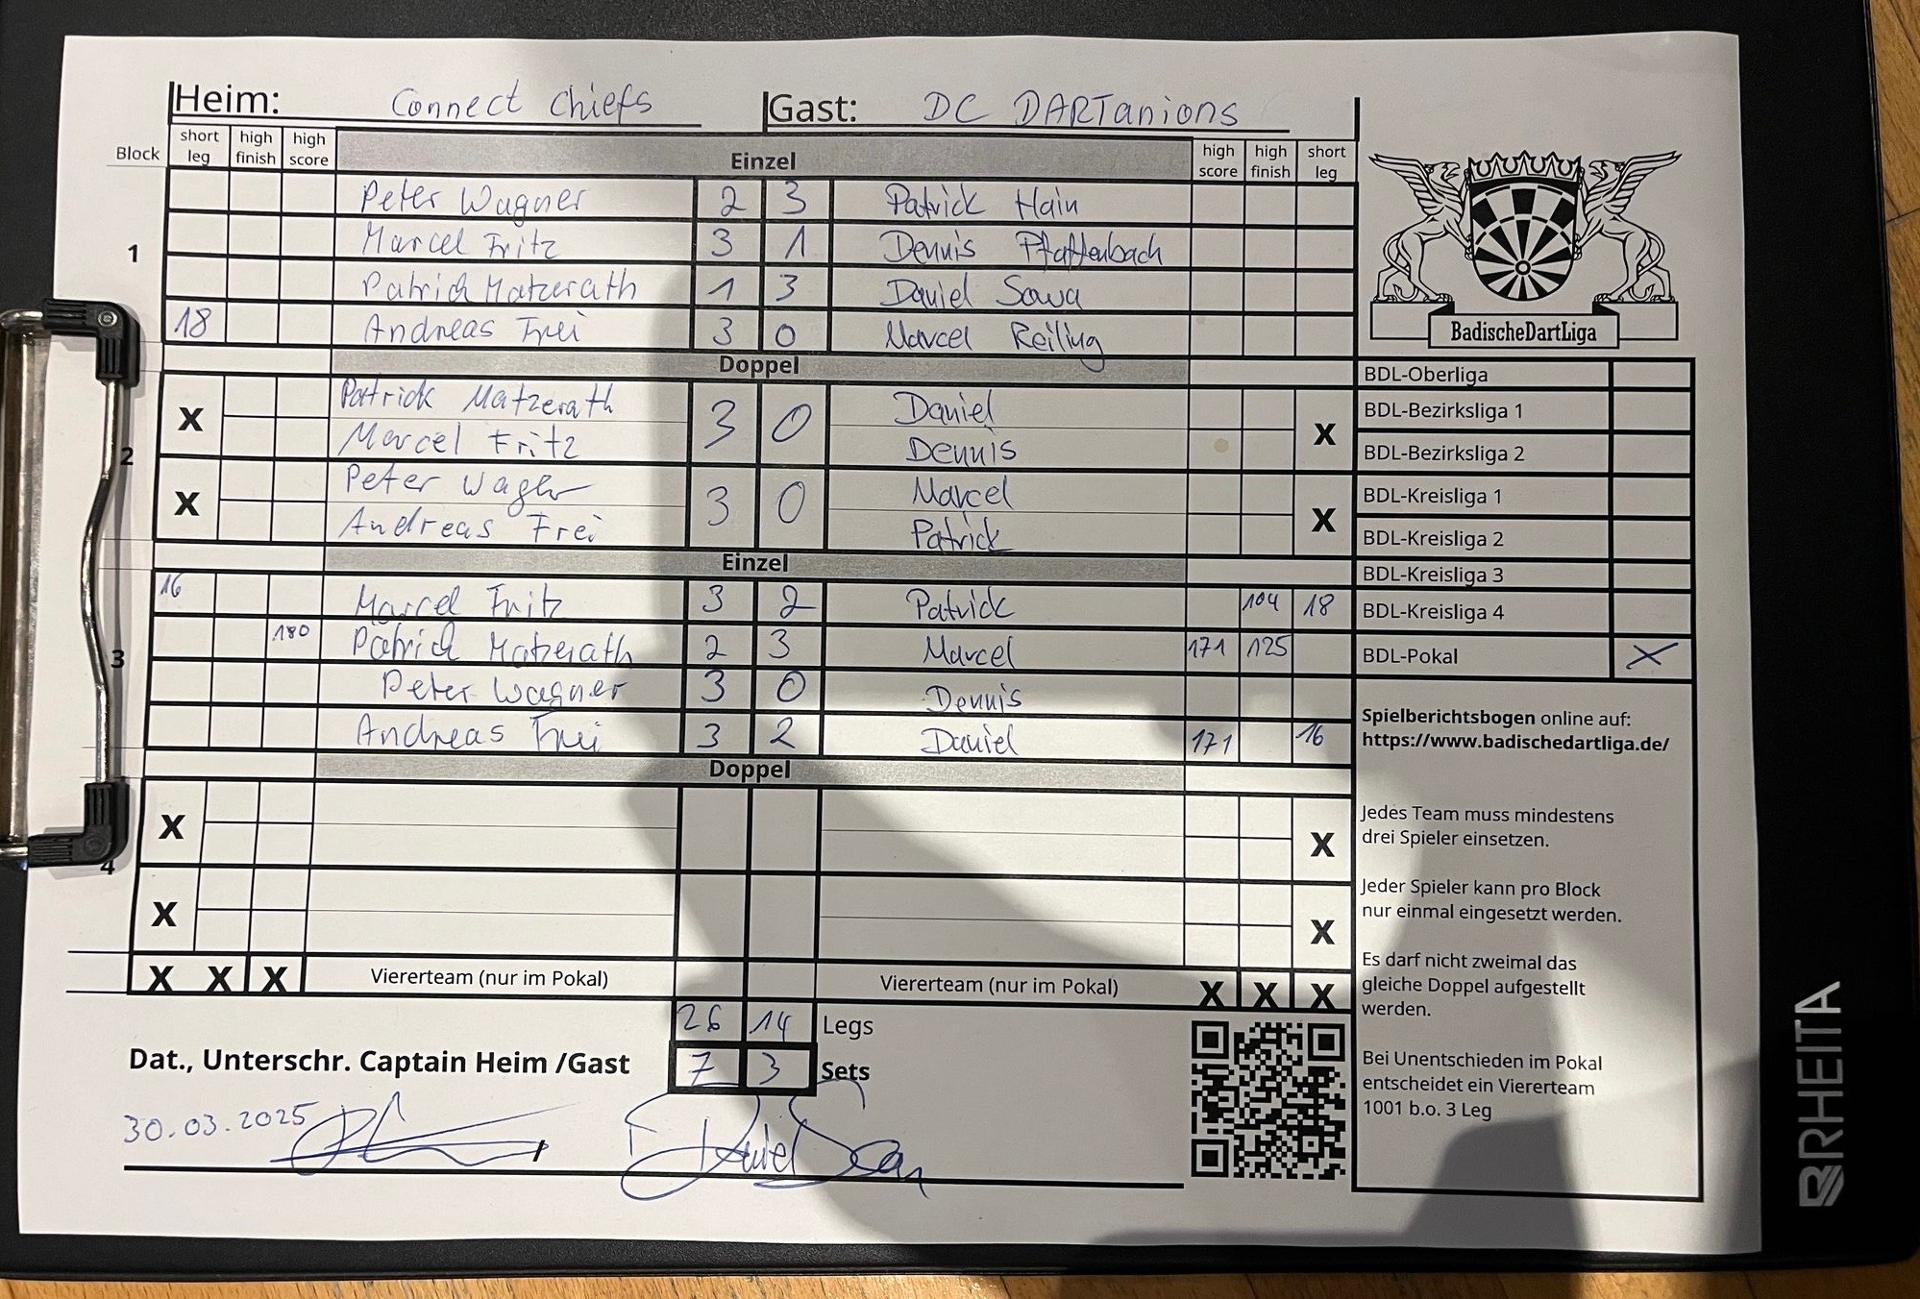 Heim: Connect Chiefs Gast: DC DARTanions
Block short leg high finish high score Einzel high score high finish short leg
1
Peter Wagner 2 3 Patrick Hain
Marcel Fritz 3 1 Dennis Pfaffenbach
Patrick Matzerath 1 3 Daniel Sowa
18 Andreas Frei 3 0 Marcel Reiling
Doppel
2
X Patrick Matzerath 3 0 Daniel X
Marcel Fritz Dennis
X Peter Wagner 3 0 Marcel X
Andreas Frei Patrick
Einzel
3
16 Marcel Fritz 3 2 Patrick 104 18
180 Patrick Matzerath 2 3 Marcel 171 125
Peter Wagner 3 0 Dennis
Andreas Frei 3 2 Daniel 171 16
Doppel
4
X X
X X
X X X Viererteam (nur im Pokal) Viererteam (nur im Pokal) X X X
26 14 Legs
7 3 Sets
Dat., Unterschr. Captain Heim /Gast
30.03.2025
BadischeDartLiga
BDL-Oberliga
BDL-Bezirksliga 1
BDL-Bezirksliga 2
BDL-Kreisliga 1
BDL-Kreisliga 2
BDL-Kreisliga 3
BDL-Kreisliga 4
BDL-Pokal X
Spielberichtsbogen online auf:
https://www.badischedartliga.de/
Jedes Team muss mindestens
drei Spieler einsetzen.
Jeder Spieler kann pro Block
nur einmal eingesetzt werden.
Es darf nicht zweimal das
gleiche Doppel aufgestellt
werden.
Bei Unentschieden im Pokal
entscheidet ein Viererteam
1001 b.o. 3 Leg
RHEITA